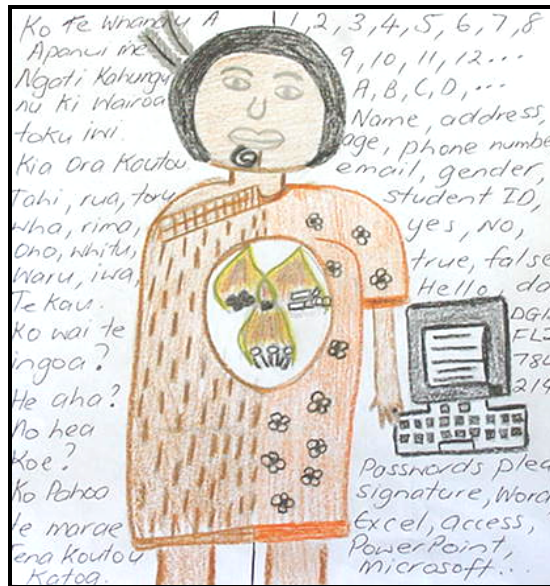 Ko Te Whanau A
Apanui me
Ngati Kahungu
nu ki Wairoa
toku iwi.
Kia Ora Koutou.
Tahi, rua, toru,
wha, rima,
Ono, whitu,
waru, iwa,
Te Kau.
Ko wai te
ingoa?
He aha?
No hea
Koe?
Ko Pahoa
te marae
Tena Koutou
Katoa.
1, 2, 3, 4, 5, 6, 7, 8
9, 10, 11, 12...
A, B, C, D, ...
Name, address,
age, phone numbe
email, gender,
student ID,
yes, No,
true, false
Hello, da
Passwords plea
signature, Word
Excel, access,
PowerPoint,
microsoft...